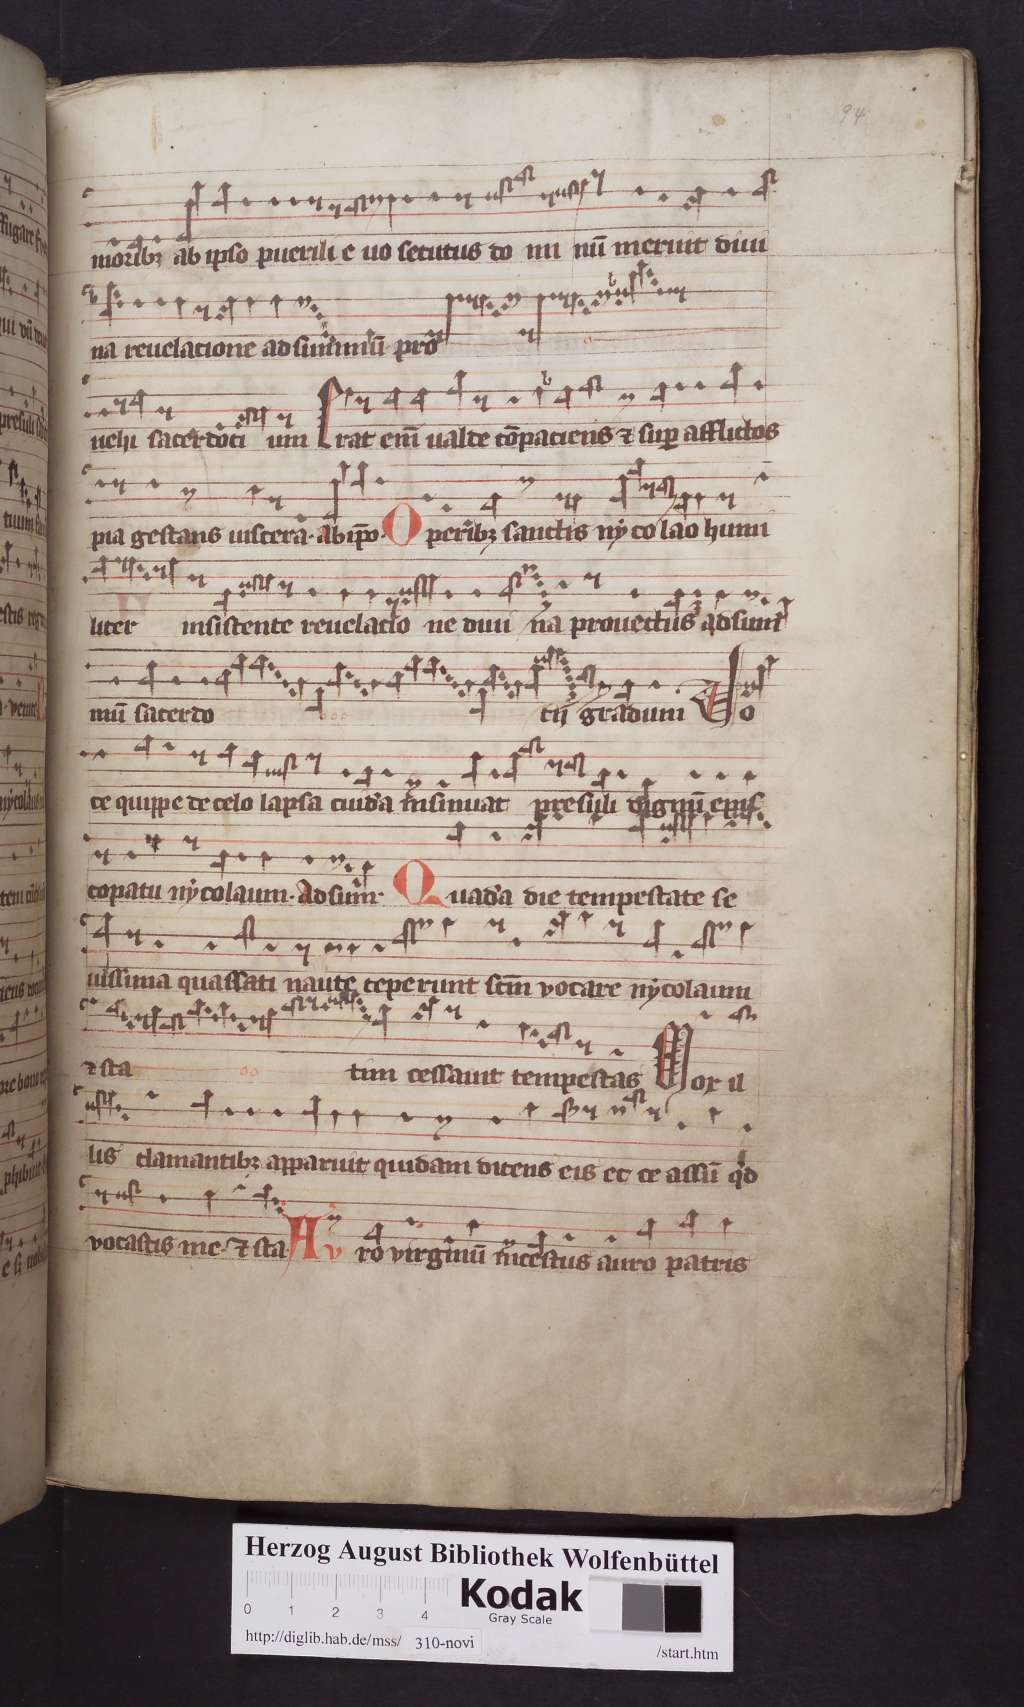 94
moribꝫ ab ipso puerili e uo secutus do mi nū meruit diui
na reuelacione ad sūmū pro
uehi sacerdoti um Erat eni̅ ualde co̅paciens ⁊ suꝑ afflictos
pia gestans uiscera· ab ip̅o· Operibꝫ sanctis nycolao humi
liter insistente reuelatio ne diui na prouectus ad sum
mū sacerdo tij gradum Vo
ce quippe de celo lapsa cuida̅ insinuat presuli dignū epis
copatu nycolaum· Ad sum̅· Quada̅ die tempestate se
uissima quassati naute ceperunt scm̅ vocare nycolaum
⁊ sta tim cessauit tempestas Mox il
lis clamantibꝫ apparuit quidam dicens eis ec ce assū qd
vocastis me· ⁊ sta Auro virginū incestus auro patris
Herzog August Bibliothek Wolfenbüttel
Kodak
Gray Scale
0 1 2 3 4
http://diglib.hab.de/mss/ 310-novi /start.htm